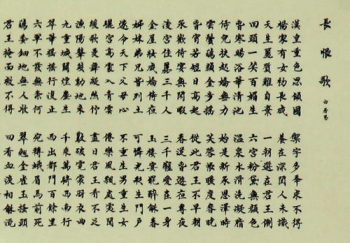 長恨歌 白居易
漢皇重色思傾國 御宇多年求不得
楊家有女初長成 養在深閨人未識
天生麗質難自棄 一朝選在君王側
回頭一笑百媚生 六宮粉黛無顏色
春寒賜浴華清池 溫泉水滑洗凝脂
侍兒扶起嬌無力 始是新承恩澤時
雲鬢花顏金步搖 芙蓉帳暖度春宵
春宵苦短日高起 從此君王不早朝
承歡侍宴無閒暇 春從春遊夜專夜
後宮佳麗三千人 三千寵愛在一身
金屋妝成嬌侍夜 玉樓宴罷醉和春
姊妹弟兄皆列土 可憐光彩生門戶
遂令天下父母心 不重生男重生女
驪宮高處入青雲 仙樂風飄處處聞
緩歌慢舞凝絲竹 盡日君王看不足
漁陽鼙鼓動地來 驚破霓裳羽衣曲
九重城闕煙塵生 千乘萬騎西南行
翠華搖搖行復止 西出都門百餘里
六軍不發無奈何 宛轉蛾眉馬前死
花鈿委地無人收 翠翹金雀玉搔頭
君王掩面救不得 回看血淚相和流